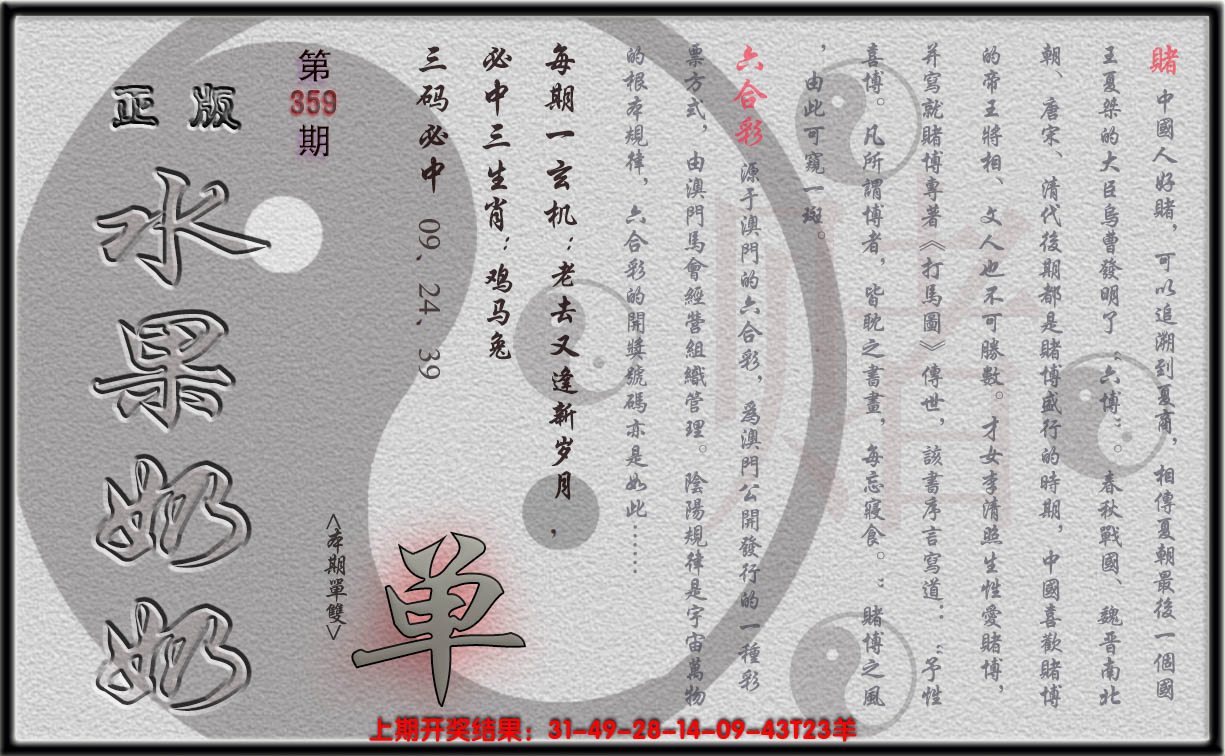 賭 中國人好賭，可以追溯到夏商，相傳夏朝最後一個國
王夏桀的大臣烏曹發明了“六博”。春秋戰國、魏晋南北
朝、唐宋、清代後期都是賭博盛行的時期，中國喜歡賭博
的帝王將相、文人也不可勝數。才女李清照生性愛賭博，
并寫就賭博專著《打馬圖》傳世，該書序言寫道：“予性
喜博。凡所謂博者，皆耽之書畫，每忘寢食。”賭博之風
，由此可窺一斑。
六合彩 源于澳門的六合彩，爲澳門公開發行的一種彩
票方式，由澳門馬會經營組織管理。陰陽規律是宇宙萬物
的根本規律，六合彩的開獎號碼亦是如此……
每期一玄机：老去又逢新岁月，
必中三生肖：鸡马兔
三码必中 09、24、39
第359期
<本期單雙>
单
正版
水果奶奶
上期开奖结果：31-49-28-14-09-43T23羊